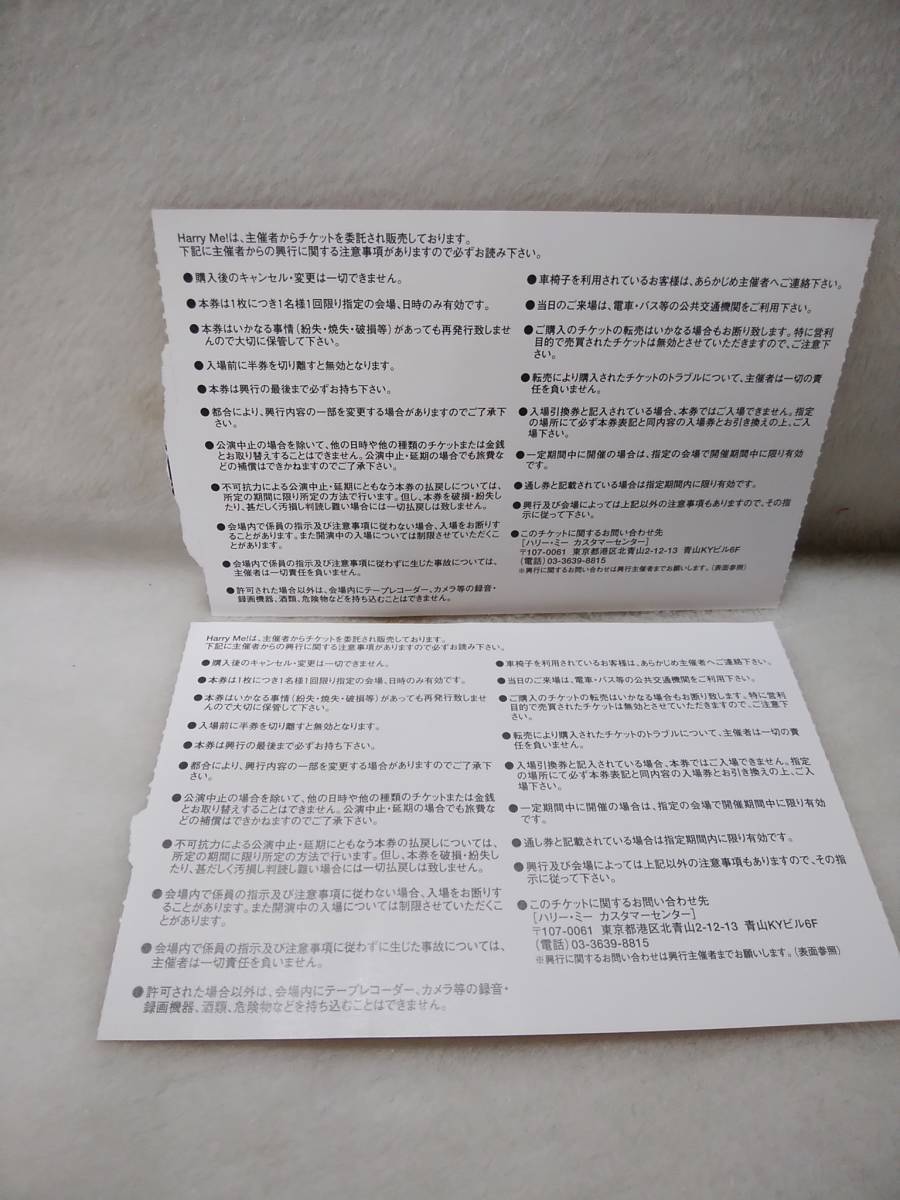 Harry Me!は、主催者からチケットを委託され販売しております。
下記に主催者からの興行に関する注意事項がありますので必ずお読み下さい。
●購入後のキャンセル・変更は一切できません。
●本券は1枚につき1名様1回限り指定の会場、日時のみ有効です。
●本券はいかなる事情(紛失・焼失・破損等)があっても再発行致しませ
んので大切に保管して下さい。
●入場前に半券を切り離すと無効となります。
●本券は興行の最後まで必ずお持ち下さい。
●都合により、興行内容の一部を変更する場合がありますのでご了承下
さい。
●公演中止の場合を除いて、他の日時や他の種類のチケットまたは金銭
とお取り替えすることはできません。公演中止・延期の場合でも旅費な
どの補償はできかねますのでご了承下さい。
●不可抗力による公演中止・延期にともなう本券の払戻しについては、
所定の期間に限り所定の方法で行います。但し、本券を破損・紛失し
たり、甚だしく汚損し判読し難い場合には一切払戻しは致しません。
●会場内で係員の指示及び注意事項に従わない場合、入場をお断りす
ることがあります。また開演中の入場については制限させていただくこ
とがあります。
●会場内で係員の指示及び注意事項に従わずに生じた事故については、
主催者は一切責任を負いません。
●許可された場合以外は、会場内にテープレコーダー、カメラ等の録音・
録画機器、酒類、危険物などを持ち込むことはできません。
●車椅子を利用されているお客様は、あらかじめ主催者へご連絡下さい。
●当日のご来場は、電車・バス等の公共交通機関をご利用下さい。
●ご購入のチケットの転売はいかなる場合もお断り致します。特に営利
目的で売買されたチケットは無効とさせていただきますので、ご注意下
さい。
●転売により購入されたチケットのトラブルについて、主催者は一切の責
任を負いません。
●入場引換券と記入されている場合、本券ではご入場できません。指定
の場所にて必ず本券表記と同内容の入場券とお引き換えの上、ご入
場下さい。
●一定期間中に開催の場合は、指定の会場で開催期間中に限り有効
です。
●通し券と記載されている場合は指定期間内に限り有効です。
●興行及び会場によっては上記以外の注意事項もありますので、その指
示に従って下さい。
●このチケットに関するお問い合わせ先
[ハリー・ミー カスタマーセンター]
〒107-0061 東京都港区北青山2-12-13 青山KYビル6F
(電話)03-3639-8815
※興行に関するお問い合わせは興行主催者までお願いします。(表面参照)
Harry Me!は、主催者からチケットを委託され販売しております。
下記に主催者からの興行に関する注意事項がありますので必ずお読み下さい。
●購入後のキャンセル・変更は一切できません。
●本券は1枚につき1名様1回限り指定の会場、日時のみ有効です。
●本券はいかなる事情(紛失・焼失・破損等)があっても再発行致しませ
んので大切に保管して下さい。
●入場前に半券を切り離すと無効となります。
●本券は興行の最後まで必ずお持ち下さい。
●都合により、興行内容の一部を変更する場合がありますのでご了承下
さい。
●公演中止の場合を除いて、他の日時や他の種類のチケットまたは金銭
とお取り替えすることはできません。公演中止・延期の場合でも旅費な
どの補償はできかねますのでご了承下さい。
●不可抗力による公演中止・延期にともなう本券の払戻しについては、
所定の期間に限り所定の方法で行います。但し、本券を破損・紛失し
たり、甚だしく汚損し判読し難い場合には一切払戻しは致しません。
●会場内で係員の指示及び注意事項に従わない場合、入場をお断りす
ることがあります。また開演中の入場については制限させていただくこ
とがあります。
●会場内で係員の指示及び注意事項に従わずに生じた事故については、
主催者は一切責任を負いません。
●許可された場合以外は、会場内にテープレコーダー、カメラ等の録音・
録画機器、酒類、危険物などを持ち込むことはできません。
●車椅子を利用されているお客様は、あらかじめ主催者へご連絡下さい。
●当日のご来場は、電車・バス等の公共交通機関をご利用下さい。
●ご購入のチケットの転売はいかなる場合もお断り致します。特に営利
目的で売買されたチケットは無効とさせていただきますので、ご注意下
さい。
●転売により購入されたチケットのトラブルについて、主催者は一切の責
任を負いません。
●入場引換券と記入されている場合、本券ではご入場できません。指定
の場所にて必ず本券表記と同内容の入場券とお引き換えの上、ご入
場下さい。
●一定期間中に開催の場合は、指定の会場で開催期間中に限り有効
です。
●通し券と記載されている場合は指定期間内に限り有効です。
●興行及び会場によっては上記以外の注意事項もありますので、その指
示に従って下さい。
●このチケットに関するお問い合わせ先
[ハリー・ミー カスタマーセンター]
〒107-0061 東京都港区北青山2-12-13 青山KYビル6F
(電話)03-3639-8815
※興行に関するお問い合わせは興行主催者までお願いします。(表面参照)